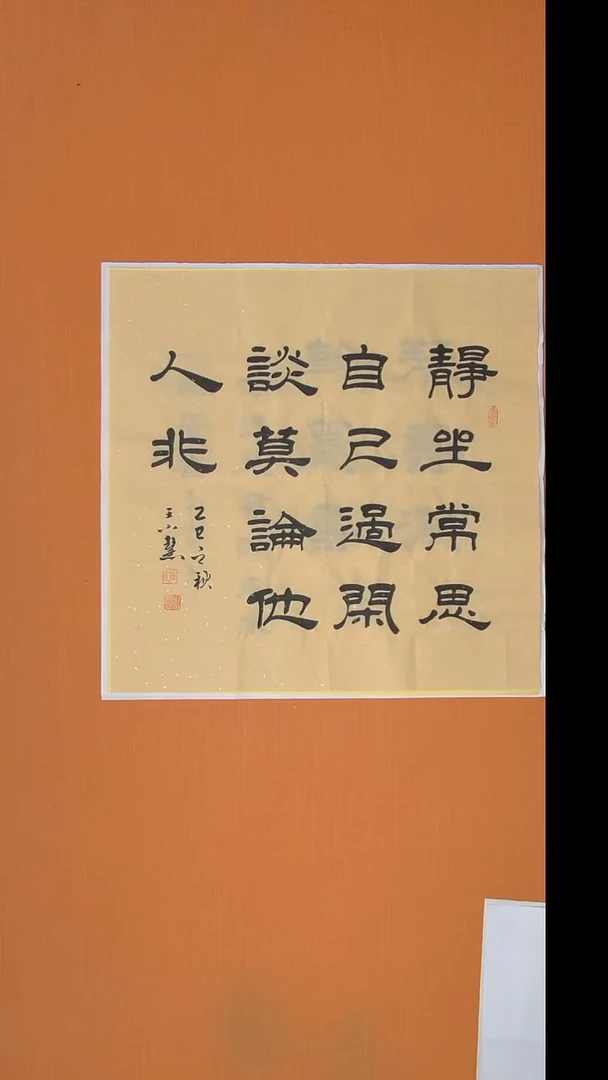 靜坐常思
自己過閑
談莫論他
人非
乙巳之秋